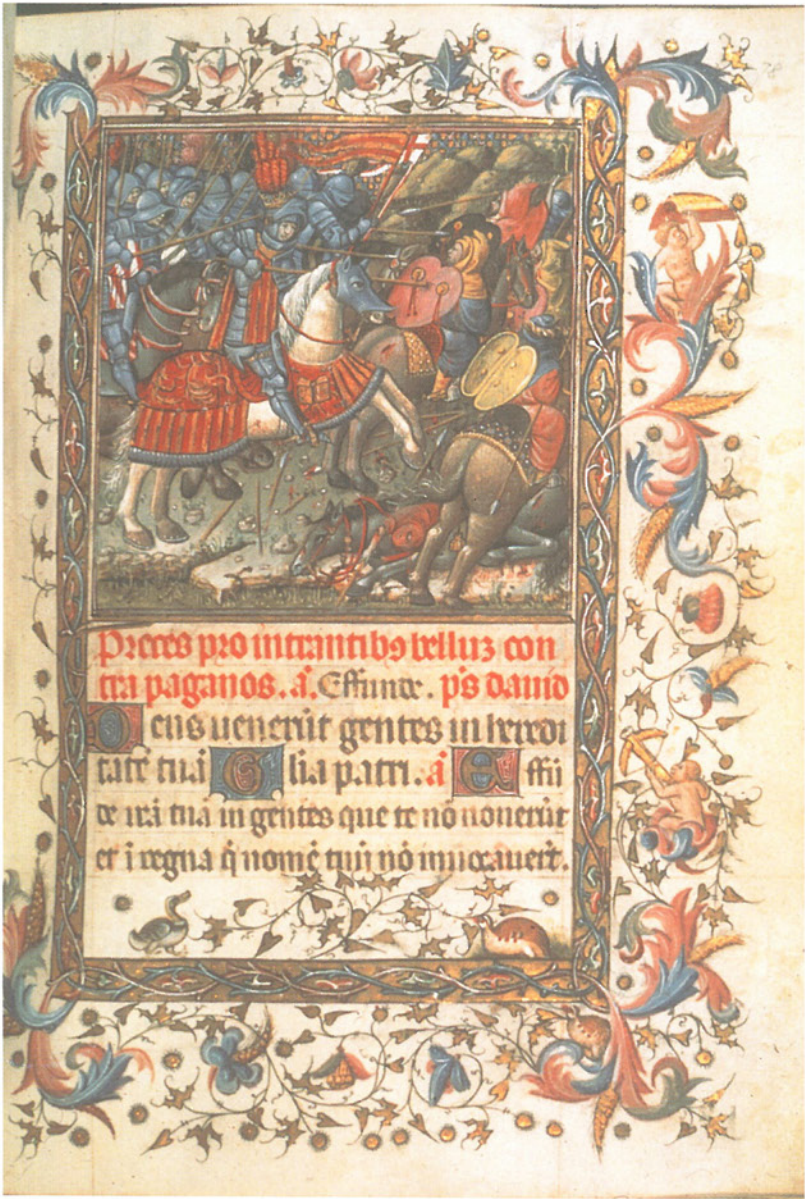 Preces pro intrantibꝯ belluȝ con
tra paganos. a̾. Effunde. p̄s dauid
Deus uenerūt gentes in heredi
tatē tuā Glīa patri. a̾ Effū
de irā tuā in gentes que te nō nouerūt
et ī regna q̄ nomē tuū nō inuocauerūt.